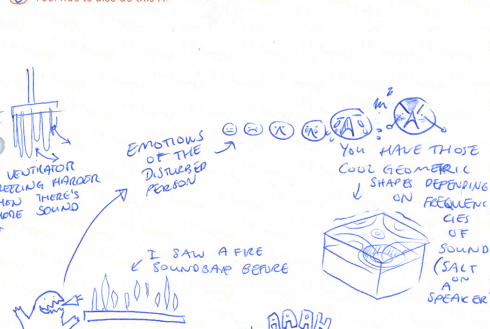 VENTILATOR
HARDER
THERE'S
SOUND
EMOTIONS
OF THE
DISTURBED
PERSON
YOU HAVE THOSE
COOL GEOMETRIC
SHAPES DEPENDING
ON FREQUEN
CIES
OF
SOUND
(SALT
ON
A
SPEAKER
I SAW A FIRE
SOUNDBAR BEFORE
AAAH